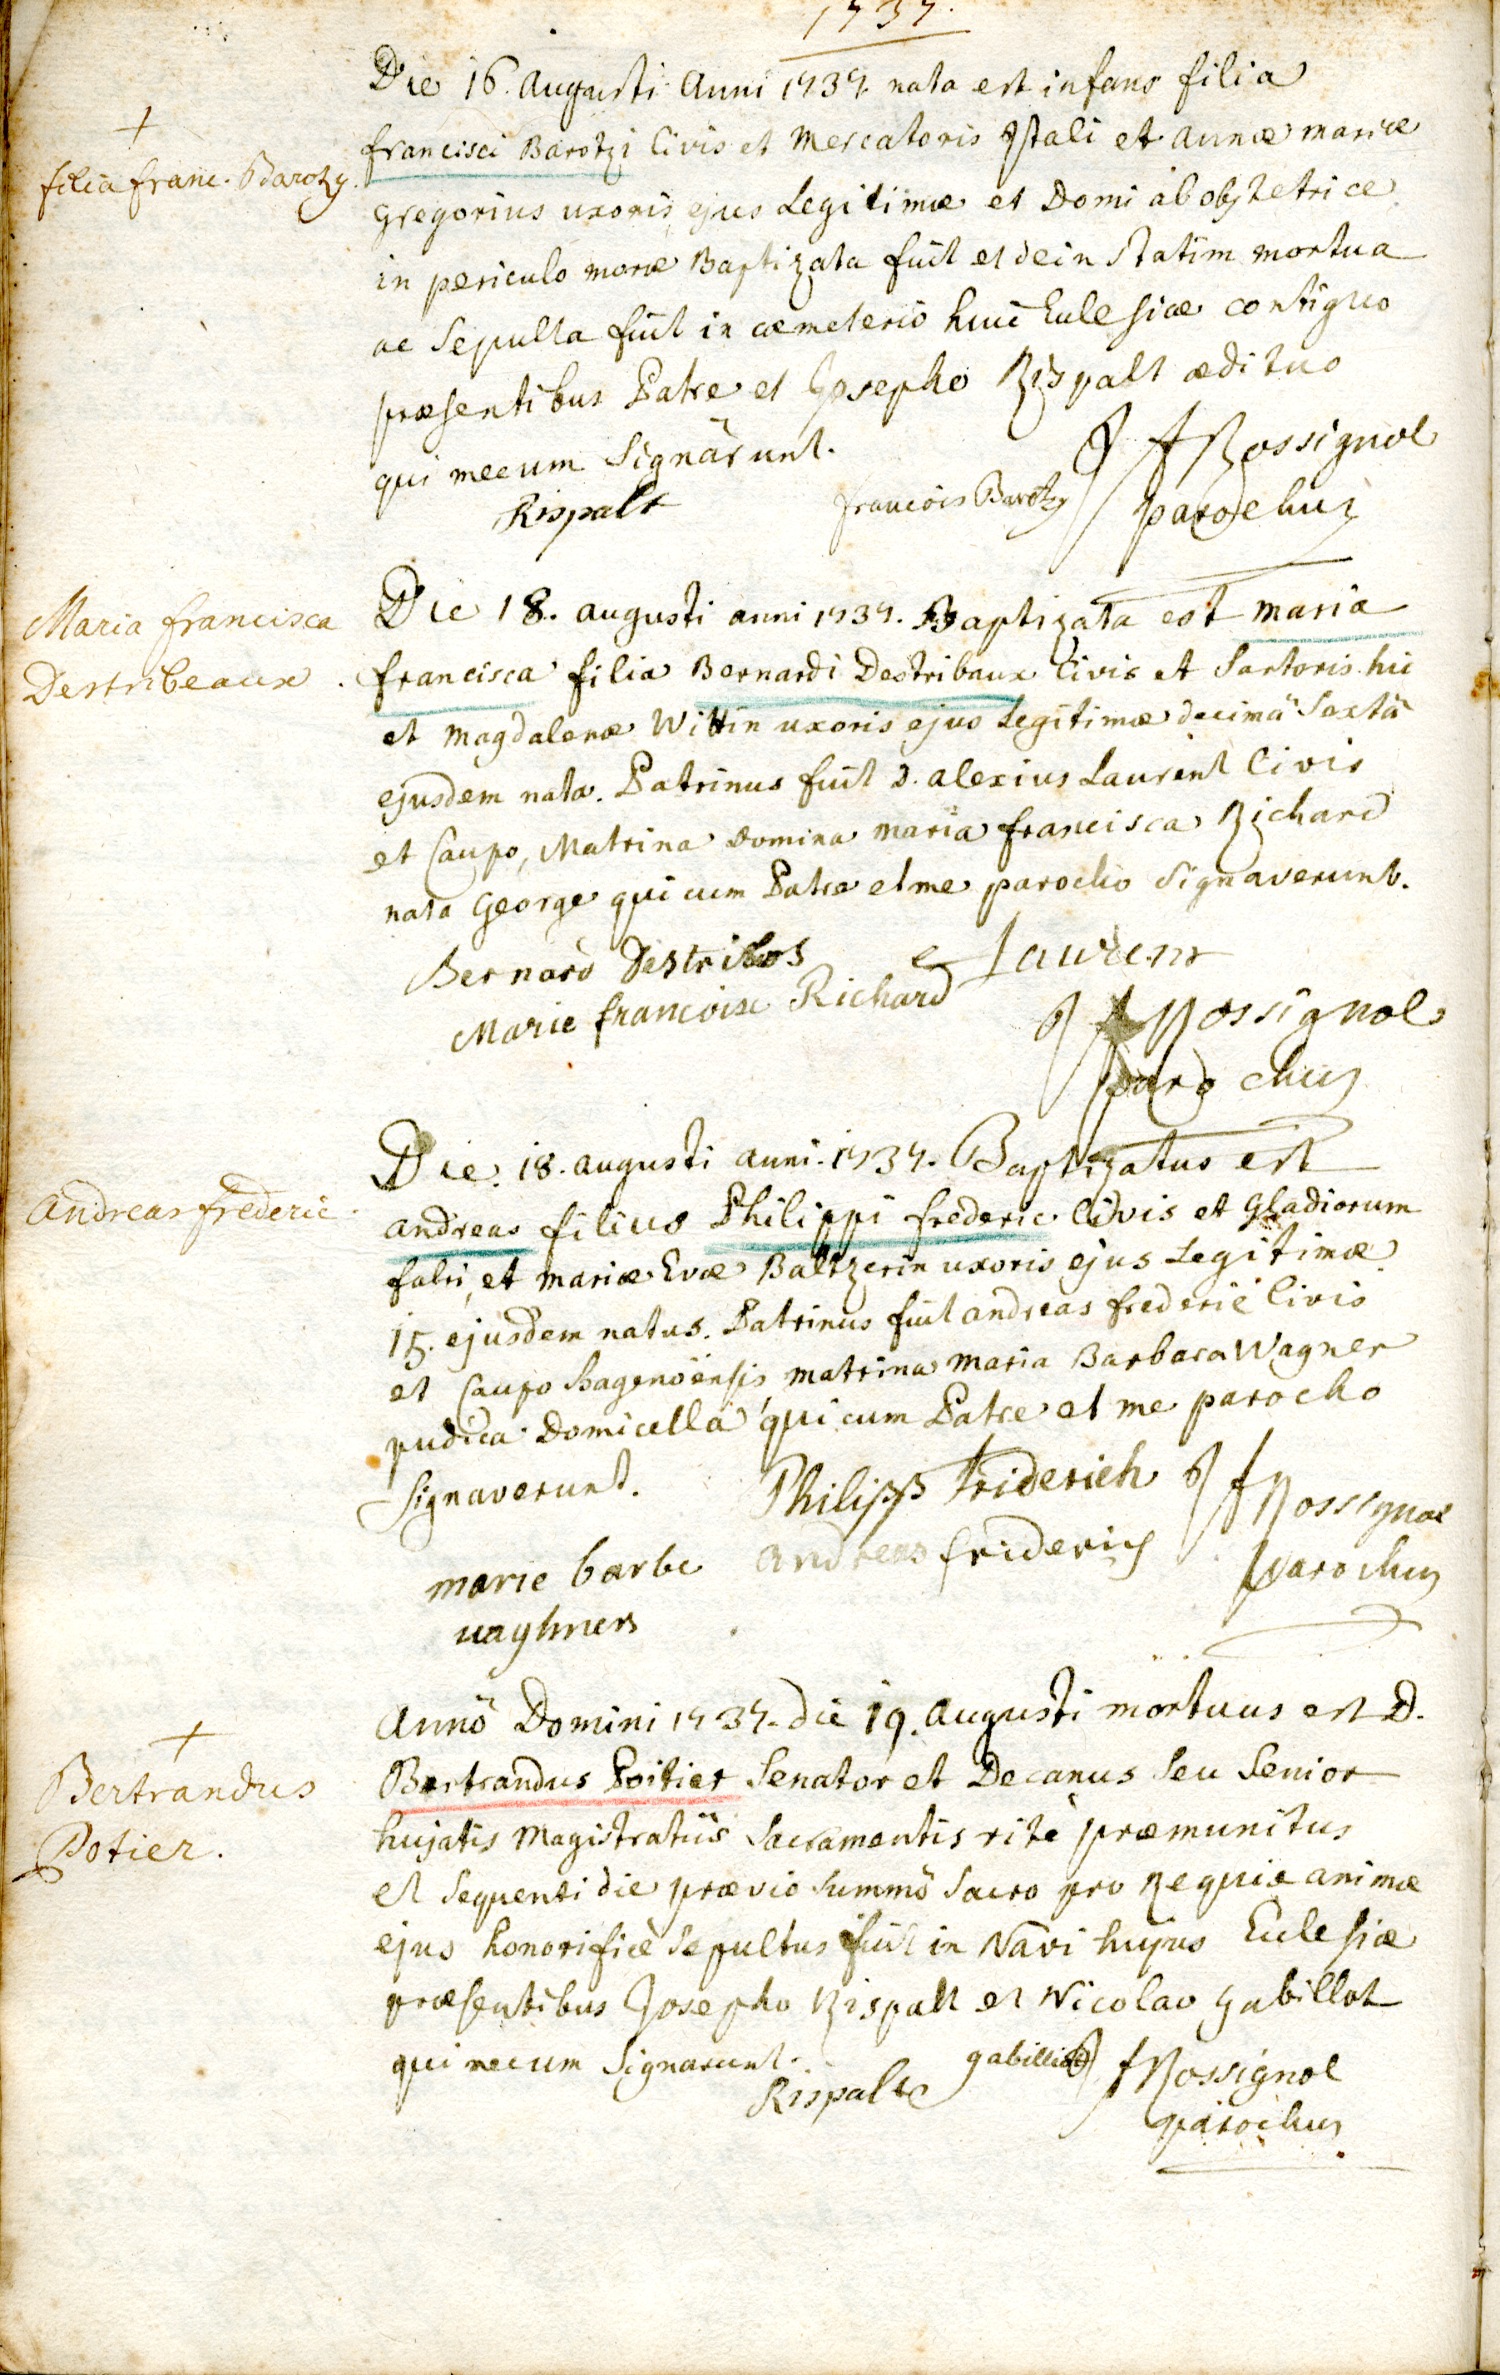 1737.
Die 16. Augusti Anni 1737. nata est infans filia
+
filia franc. Barozy.
francisci Barotzi Civis et Mercatoris Itali et annæ mariæ
gregorius uxoris ejus Legitimæ et Domi ab obstetrice
in periculo mortæ Baptizata fuit et dein statim mortua
ac Sepulta fuit in cæmeterio huic Ecclesiæ contiguo
præsentibus Patre et Josepho Rispalt ædituo
qui mecum Signârunt.
Rispalt
francois Barotzy
J f Rossignol
parochus
Maria francisca
Destribeaux.
Die 18. augusti anni 1737. Baptizata est maria
francisca filia Bernardi Destribaux Civis et Sartoris hic
et Magdalenæ Wittin uxoris ejus Legitimæ decimâ Sextâ
ejusdem nata. Patrinus fuit D. alexius Laurent Civis
et Caupo, Matrina Domina maria francisca Richard
nata George qui cum Patre et me parocho Signaverunt.
Bernard Destribos
Laurent
Marie francoise Richard
J f Rossignol
parochus
andreas frederic.
Die 18. augusti anni 1737. Baptizatus est
andreas filius Philippi frederic Civis et Gladiorum
fabri, et mariæ Evæ Baltzerin uxoris ejus Legitimæ
15. ejusdem natus. Patrinus fuit andreas frederic Civis
et Caupo hagenoënsis matrina maria Barbara Wagner
pudica Domicella qui cum Patre et me parocho
Signaverunt.
Philipp Friderich
J f Rossignol
marie barbe
andreas friderich
parochus
uaghners
+
Bertrandus
Potier.
Annô Domini 1737. die 19. Augusti mortuus est D.
Bertrandus Poitier Senator et Decanus Seu Senior
hujatis Magistratûs Sacramentis ritè præmunitus
et Sequenti die prævio Summô Sacro pro Requie animæ
ejus honorificè Sepultus fuit in Navi hujus Ecclesiæ
præsentibus Josepho Rispalt et Nicolao gabillot
qui mecum Signarunt.
Rispalt
gabilliot
J f Rossignol
parochus